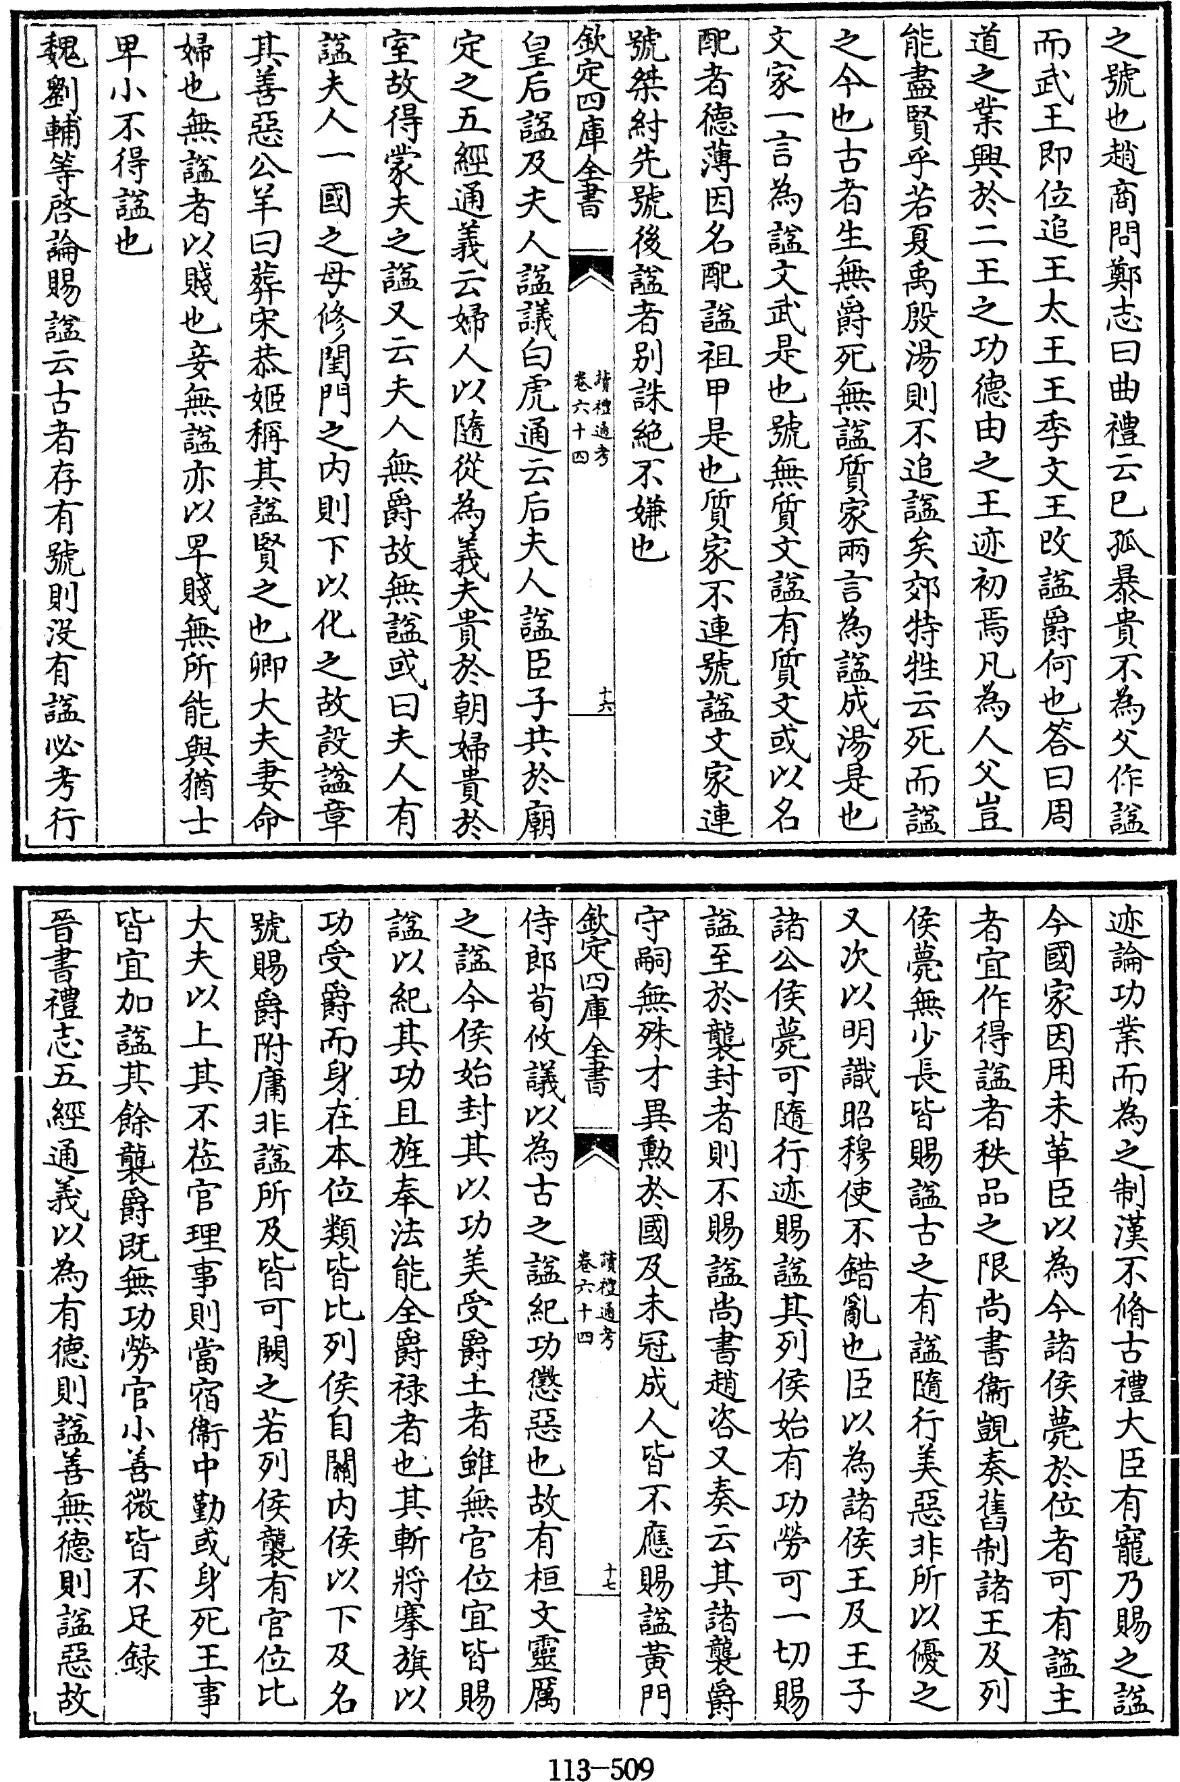 之號也趙商問鄭志曰曲禮云已孤暴貴不為父作諡
而武王即位追王太王王季文王改諡爵何也答曰周
道之業興於二王之功德由之王迹初焉凡為人父豈
能盡賢乎若夏禹殷湯則不追諡矣郊特牲云死而諡
之今也古者生無爵死無諡質家兩言為諡成湯是也
文家一言為諡文武是也號無質文諡有質文或以名
配者德薄因名配諡祖甲是也質家不連號諡文家連
號桀紂先號後諡者别誅絶不嫌也
欽定四庫全書
讀禮通考
卷六十四
十六
皇后諡及夫人諡議白虎通云后夫人諡臣子共於廟
定之五經通義云婦人以隨從為義夫貴於朝婦貴於
室故得蒙夫之諡又云夫人無爵故無諡或曰夫人有
諡夫人一國之母修閨門之内則下以化之故設諡章
其善惡公羊曰葬宋恭姬稱其諡賢之也卿大夫妻命
婦也無諡者以賤也妾無諡亦以卑賤無所能與猶士
卑小不得諡也
魏劉輔等啓論賜諡云古者存有號則没有諡必考行
迹論功業而為之制漢不脩古禮大臣有寵乃賜之諡
今國家因用未革臣以為今諸侯薨於位者可有諡主
者宜作得諡者秩品之限尚書衞覬奏舊制諸王及列
侯薨無少長皆賜諡古之有諡隨行美惡非所以優之
又次以明識昭穆使不錯亂也臣以為諸侯王及王子
諸公侯薨可隨行迹賜諡其列侯始有功勞可一切賜
諡至於襲封者則不賜諡尚書趙咨又奏云其諸襲爵
守嗣無殊才異勲於國及未冠成人皆不應賜諡黄門
欽定四庫全書
讀禮通考
卷六十四
十七
侍郎荀攸議以為古之諡紀功懲惡也故有桓文靈厲
之諡今侯始封其以功美受爵土者雖無官位宜皆賜
諡以紀其功且旌奉法能全爵禄者也其斬將搴旗以
功受爵而身在本位類皆比列侯自關内侯以下及名
號賜爵附庸非諡所及皆可闕之若列侯襲有官位比
大夫以上其不莅官理事則當宿衞中勤或身死王事
皆宜加諡其餘襲爵既無功勞官小善微皆不足録
晉書禮志五經通義以為有德則諡善無德則諡惡故
113-509